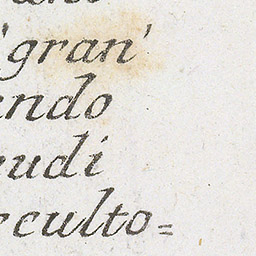 'gran'
endo
udi
culto=